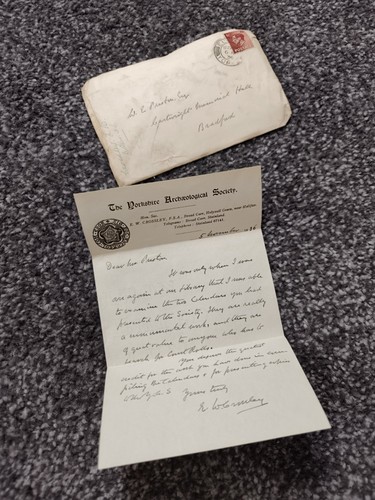 Cartwright Memorial Hall
Bradford
The Yorkshire Archæological Society.
Hon. Sec.
E. W. CROSSLEY, F.S.A.,
Dear Mr Preston
It was only when I was
again at our Library that I was able
to examine the two Calendars you had
presented to the Society. They are really
monumental works and they are
of great value to anyone who has to
work for Court Rolls
You deserve the greatest
credit for the work you have done in com-
piling the Calendars & for presenting copies
Yours truly
E. W. Crossley